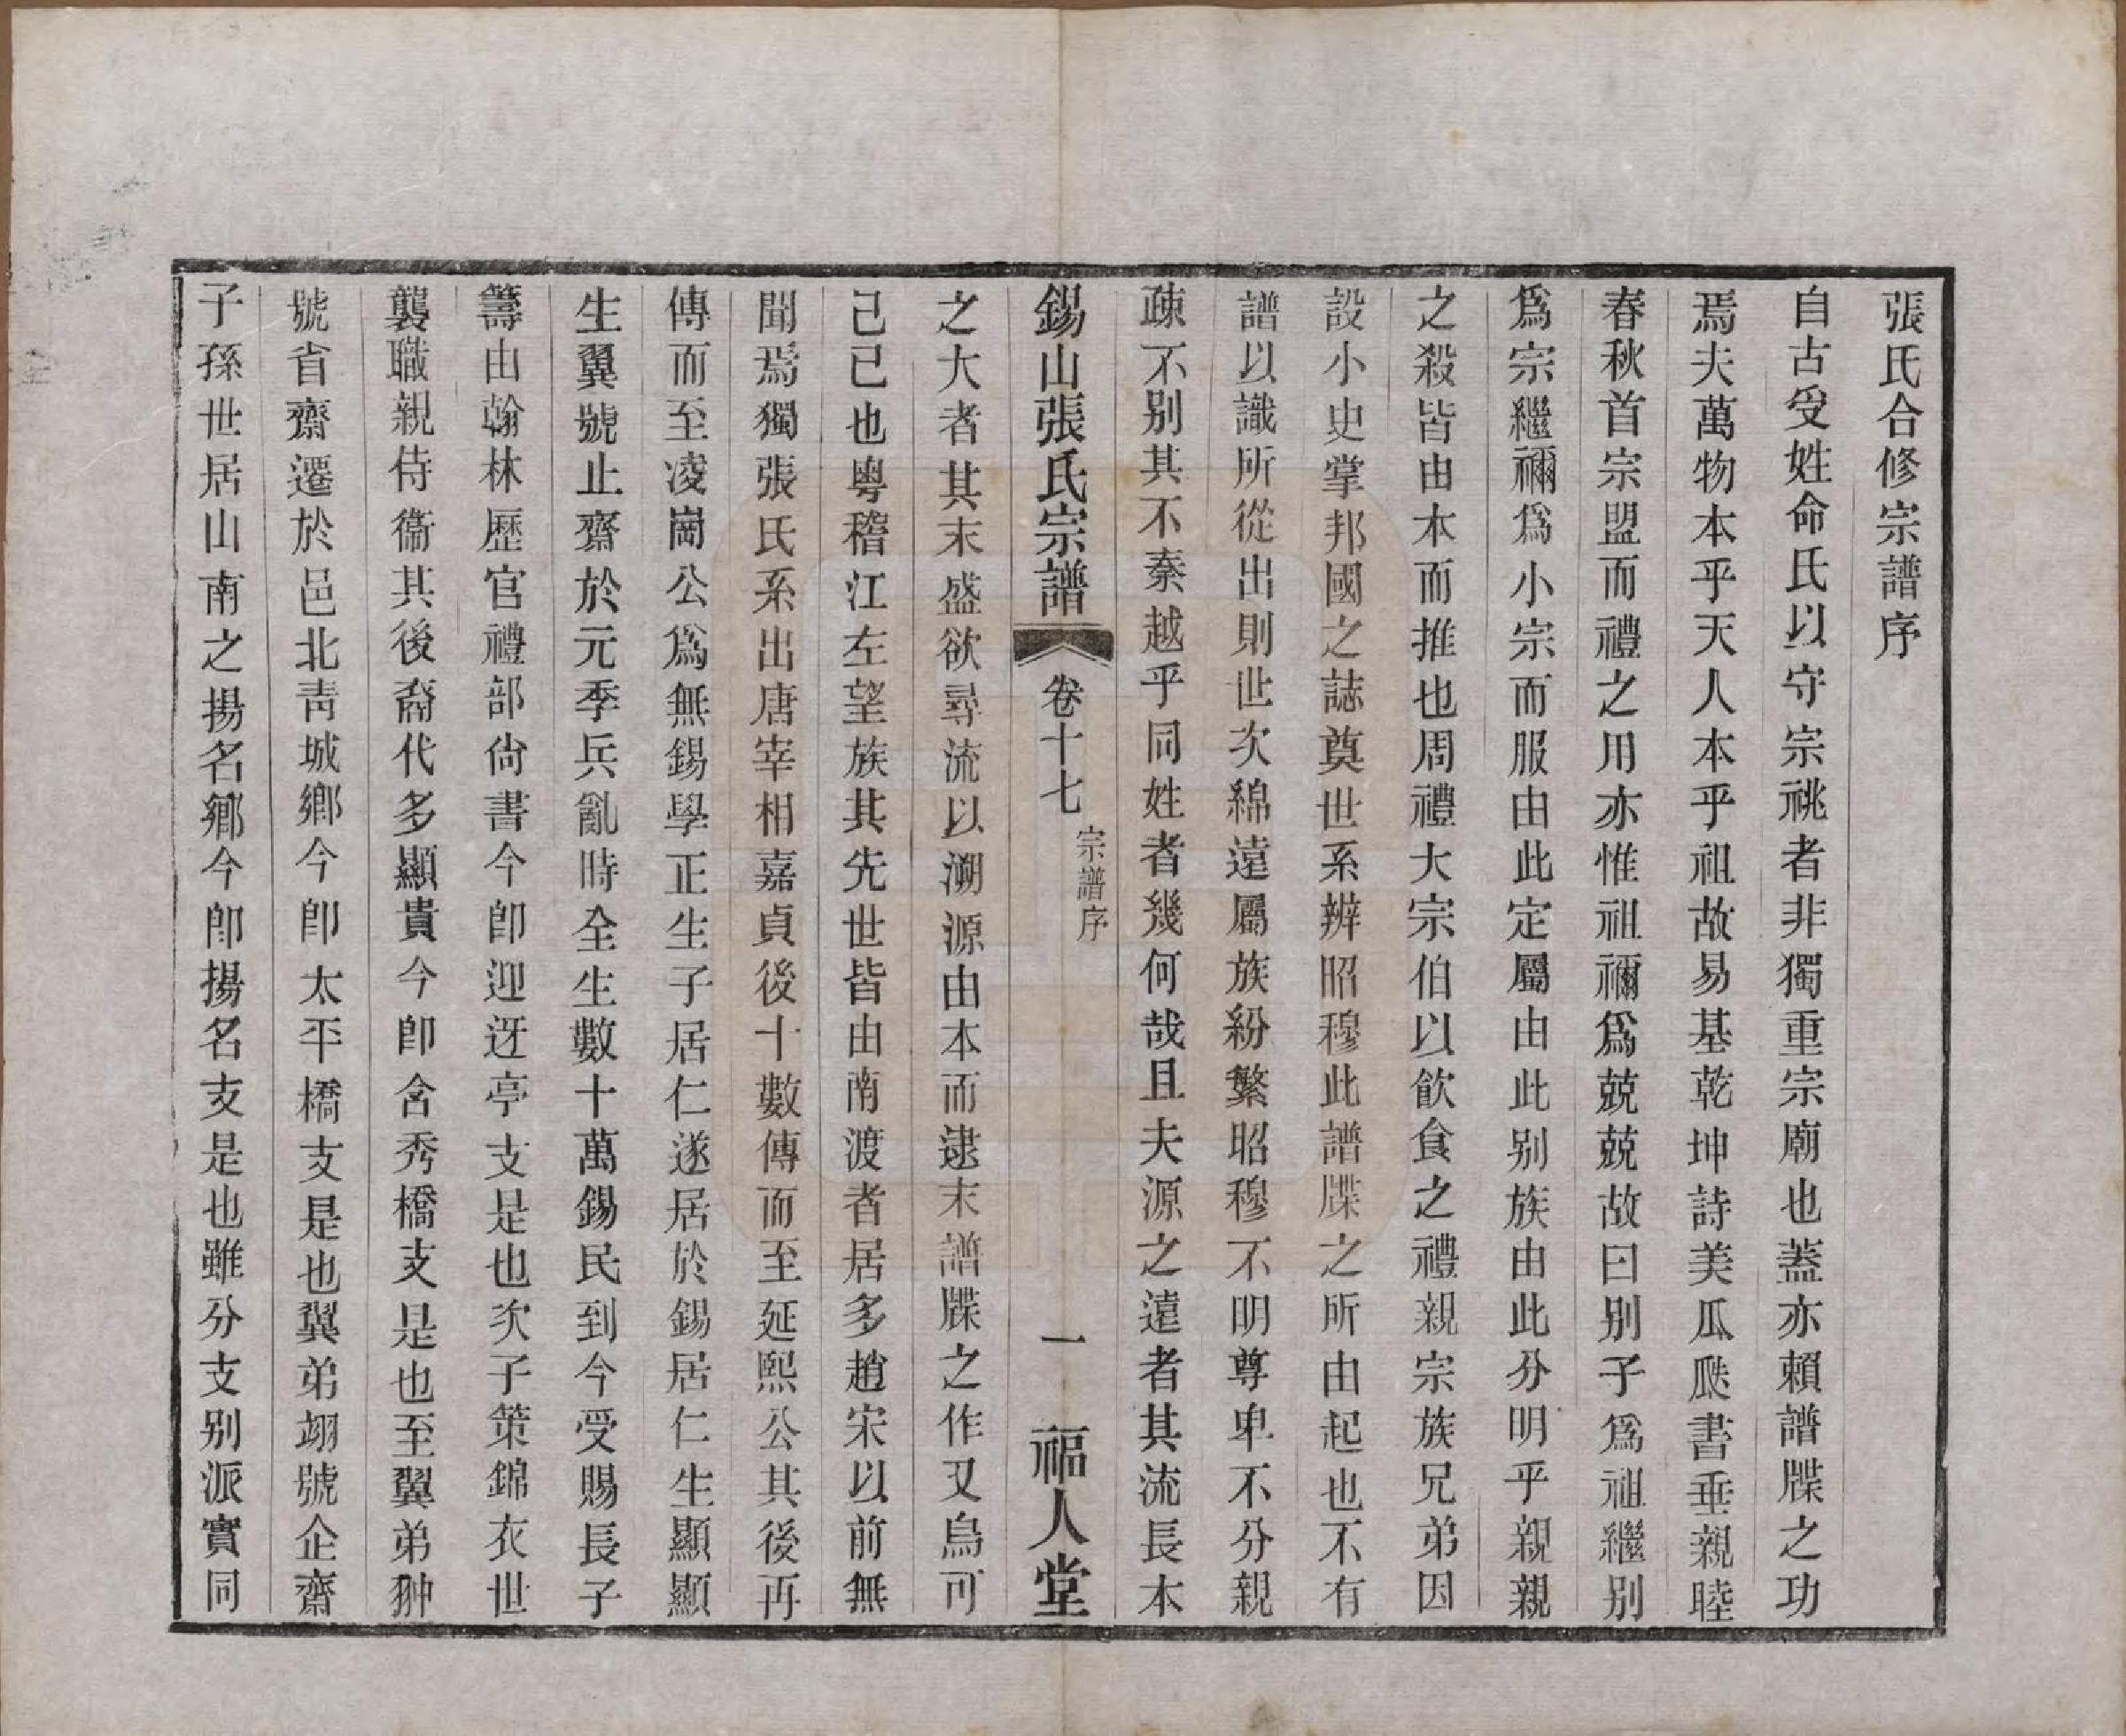 張氏合修宗譜序
自古受姓命氏以守宗祧者非獨重宗廟也蓋亦賴譜牒之功
焉夫萬物本乎天人本乎祖故易基乾坤詩美瓜瓞書垂親睦
春秋首宗盟而禮之用亦惟祖禰爲兢兢故曰別子爲祖繼別
爲宗繼禰爲小宗而服由此定屬由此別族由此分明乎親親
之殺皆由本而推也周禮大宗伯以飮食之禮親宗族兄弟因
設小史掌邦國之誌奠世系辨昭穆此譜牒之所由起也不有
譜以識所從出則世次綿遠屬族紛繁昭穆不明尊卑不分親
疎不別其不秦越乎同姓者幾何哉且夫源之遠者其流長本
錫山張氏宗譜 卷十七 宗譜序 一 福人堂
之大者其末盛欲尋流以溯源由本而逮末譜牒之作又烏可
已已也粤稽江左望族其先世皆由南渡者居多趙宋以前無
聞焉獨張氏系出唐宰相嘉貞後十數傳而至延熙公其後再
傳而至凌崗公爲無錫學正生子居仁遂居於錫居仁生顯顯
生翼號止齋於元季兵亂時全生數十萬錫民到今受賜長子
籌由翰林歷官禮部尙書今卽迎迓亭支是也次子策錦衣世
襲職親侍衞其後裔代多顯貴今卽含秀橋支是也至翼弟翀
號省齋遷於邑北靑城鄉今卽太平橋支是也翼弟翊號企齋
子孫世居山南之揚名鄉今卽揚名支是也雖分支別派實同